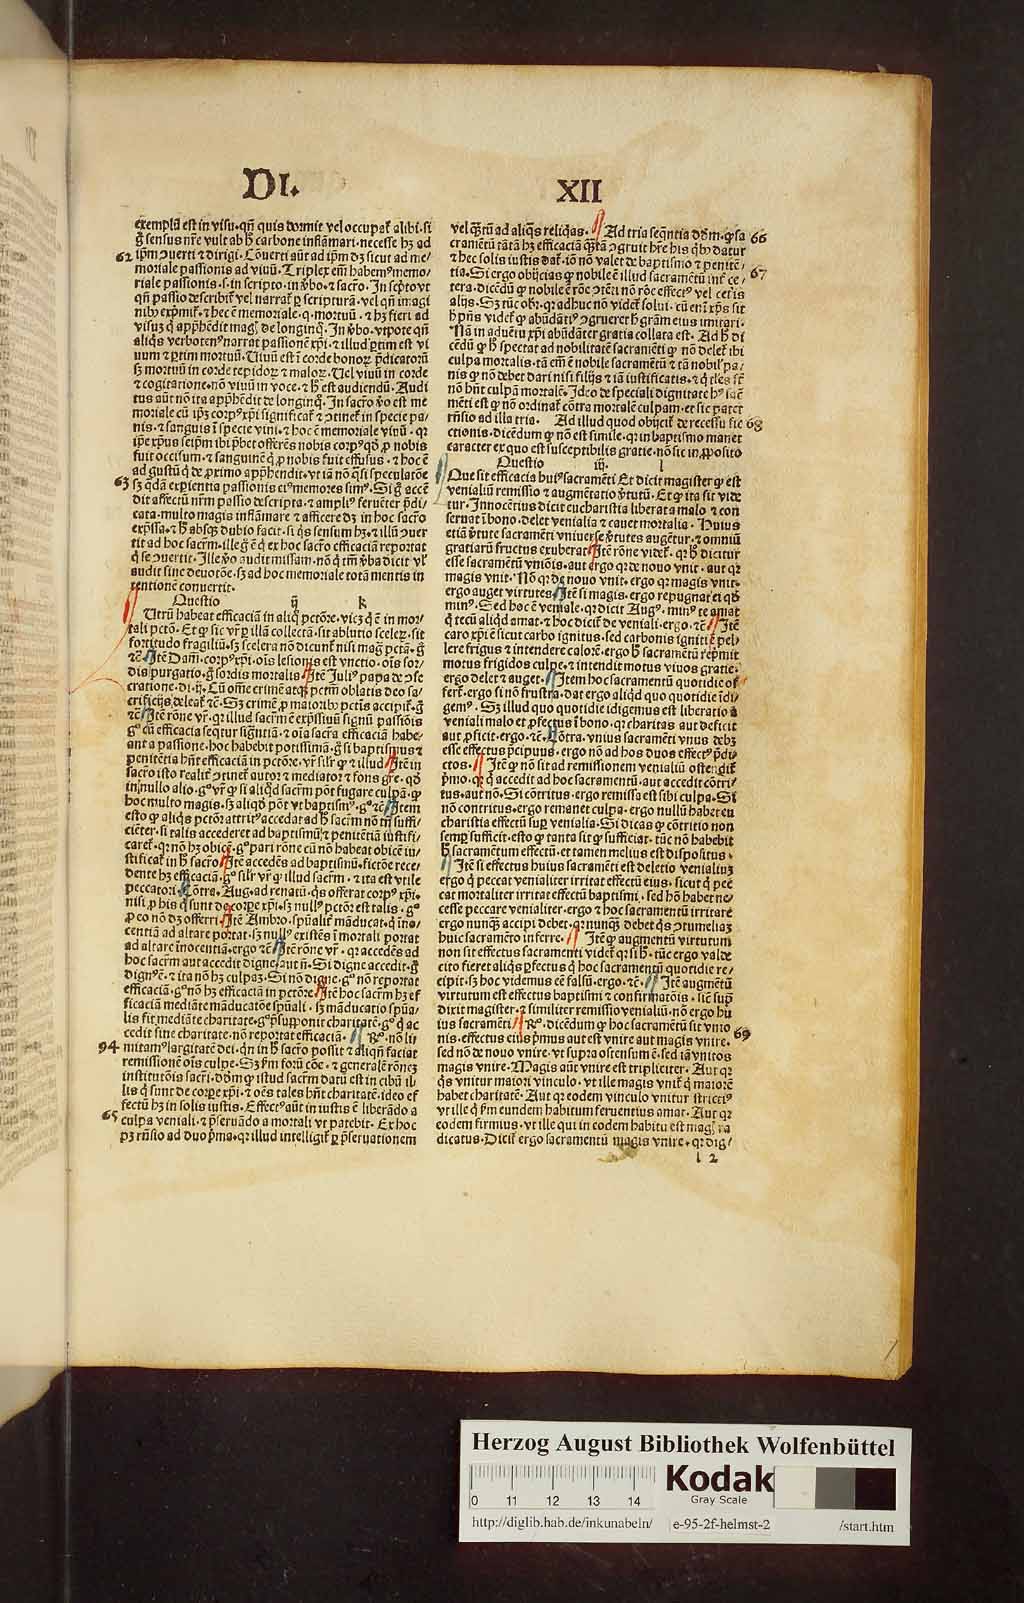 DI.
XII
exemplũ est in visu. qñ quia dormit vel occupat̃ alibi. si
g̃ sensus nr̃e vult ab h̃ carbone inflãmari. necesse hꝫ ad
62 ip̃m ꝯuerti ⁊ dirigi. Cõuerti aũt ad ip̃m dꝫ sicut ad me/
moriale passionis ad viuũ. Triplex em̃ habemꝰ memo/
riale passionis. s. in scripto. in v̾bo. ⁊ sacro. In sc̾pto vt
qñ passio describit̃ vel narrat̃ ꝑ scripturã. vel qñ imagi
nibꝰ exp̾mit̃. ⁊ hec ẽ memoriale. q. mortuũ. ⁊ hꝫ fieri ad
visuꝫ q̃ app̾hẽdit mag̃ de longinq̃. In v̾bo. vtpote qñ
aliqs verbotenꝰ narrat passionẽ xp̃i. ⁊ illud ꝑtim est vi
uum ⁊ ꝑtim mortuũ. Uiuũ est ĩ corde bonoꝝ p̾dicatorũ
sꝫ mortuũ in corde tepidoꝝ ⁊ maloꝝ. Uel viuũ in corde
⁊ cogitatione. nõ viuũ in voce. ⁊ h̃ est audiendũ. Audi
tus aũt nõ ita app̾hẽdit de longinq̃. In sacro v̾o est me
moriale cũ ip̃m corpꝰ xp̃i significat̃ ⁊ ꝯtinet̃ in specie pa/
nis. ⁊ sanguis ĩ specie vini. ⁊ hoc ẽ memoriale viuũ. qꝛ
ip̃e xp̃us seip̃m ibi p̾bet offerẽs nobis corpꝰ qd̃ ꝓ nobis
fuit occisum. ⁊ sanguinẽ q̃ ꝓ nobis fuit effusus. ⁊ hoc ẽ
ad gustũ q̃ de ꝓximo app̾hendit. vt iã nõ q̃si speculatõe
63 sꝫ q̃dã exp̃ientia passionis eiꝰ memores simꝰ. Si g̃ accẽ
dit affectũ nr̃m passio descripta. ⁊ ampliꝰ feruẽter p̾di/
cata. multo magis inflãmare ⁊ afficere dꝫ in hoc sacro
exp̾ssa. ⁊ h̃ absqꝫ dubio facit. si q̃s sensum hꝫ. ⁊ illũ ꝯuer
tit ad hoc sacrm̃. ille g̃ ẽ q̃ ex hoc sacro efficaciã reportat
q̃ se ꝯuertit. Ille v̾o audit missam. nõ q̃ tm̃ v̾ba dicit vl̾
audit sine deuotõe. sꝫ ad hoc memoriale totã mentis in
tentionẽ conuertit.
Questio ij̃ k
Utrũ habeat efficaciã in aliq̃ pctõre. vicꝫ q̃ ẽ in mor/
tali pctõ. Et ꝙ sic vr̃ ꝑ illã collectã. sit ablutio sceleꝝ. sit
fortitudo fragiliũ. sꝫ scelera nõ dicunt̃ nisi mag̃ pctã. g̃
⁊c̃ Itẽ Dam̃. corpꝰ xp̃i. oĩs lesionis est vnctio. oĩs sor/
dis purgatio. g̃ sordis mortalis Itẽ Juliꝰ papa de ꝯse
cratione. di. ij. Cũ om̃e crimẽ atqꝫ pctm̃ oblatis deo sa/
crificijs deleat̃ ⁊c̃. Sꝫ crimẽ ꝓ maioribꝰ pctis accipit̃. g̃
⁊c̃ Itẽ rõne vr̃. qꝛ illud sacrm̃ ẽ exp̾ssiuũ signũ passiõis
gͦ cũ efficacia seqtur signũ tiã. ⁊ oĩa sacra efficaciã habe/
ant a passione. hoc habebit potissimã. g̃ si baptismus ⁊
penitẽtia hñt efficaciã in pctõre. vr̃ sil̾r ꝙ ⁊ illud Itẽ in
sacro isto realit̾ ꝯtinet̃ autor ⁊ mediator ⁊ fons gr̃e. qd̃
in nullo alio. gͦ vr̃ ꝙ si aliqd̃ sacrm̃ põt fugare culpã. ꝙ
hoc multo magis. sꝫ aliqd̃ põt vt baptismꝰ. gͦ ⁊c̃ Item
esto ꝙ aliqs pctõr attritꝰ accedat ad h̃ sacrm̃ nõ tñ suffi/
ciẽter. si talis accederet ad baptismũ ⁊ penitẽtiã iustifi/
caret̃. qꝛ nõ hꝫ obicẽ. gͦ pari rõne cũ nõ habeat obicẽ iu/
stificat̃ in h̃ sacro Itẽ accedẽs ad baptismũ. fictõe rece/
dente hꝫ efficaciã. gͦ sil̾r vr̃ ꝙ illud sacrm̃. ⁊ ita est vtile
peccatori Cõtra. Aug. ad renatũ. q̃s offerat corpꝰ xp̃i.
nisi ꝓ his q̃ sunt de corꝑe xp̃i. sꝫ nullꝰ pctõr est talis. gͦ
ꝓ eo nõ dꝫ offerri Itẽ Ambro. spũalit̾ mãducat. q̃ ino/
centiã ad altare portat. sꝫ nullꝰ existẽs ĩ mortali portat
ad altare inocentiã. ergo ⁊c̃ Itẽ rõne vr̃. qꝛ accedẽs ad
hoc sacrm̃ aut accedit digne. aut ñ. Si digne accedit. g̃
dignꝰ ẽ. ⁊ ita nõ hꝫ culpaꝫ. Si nõ digne. gͦ nõ reportat
efficaciã. gͦ nõ hꝫ efficaciã in pctõre Itẽ hoc sacrm̃ hꝫ ef
ficaciam mediãte mãducatõe spũali. sꝫ mãducatio spũa/
lis fit mediãte charitate. gͦ p̾supponit charitatẽ. gͦ q̃ ac
cedit sine charitate. nõ reportat efficaciã. Rͦ. nõ li/
94 mitamꝰ largitatẽ dei. qn̾ in h̃ sacro possit ⁊ aliqñ faciat
remissionẽ oĩs culpe. Sꝫ ẽm forũ cõe. ⁊ generalẽ rõneꝫ
institutõis sacri. dõm ꝙ istud sacrm̃ datũ est in cibũ il/
lis q̃ sunt de corꝑe xp̃i. ⁊ oẽs tales hñt charitatẽ. ideo ef
fectũ hꝫ in solis iustis. Effectꝰ aũt in iustis ẽ liberãdo a
65 culpa veniali. ⁊ p̾seruãdo a mortali vt patebit. Ex hoc
pꝫ rñsio ad duo p̾ma. qꝛ illud intelligit̃ ꝑ p̾seruationem
vel q̃tũm ad aliqs reliqas. Ad tria seqntia dõm. ꝙ sa 66
cramẽtũ tãtã hꝫ efficaciã q̃tã ꝯgruit hr̃e his qb̾ datur
⁊ hec solis iustis dat̃. iõ nõ valet de baptismo ⁊ peniteñ/
tia. Si ergo obijcias ꝙ nobile ẽ illud sacramẽtũ int̃ ce/ 67
tera. dicẽdũ ꝙ nobile ẽ rõe ꝯtẽti nõ rõe effectꝰ vel cet̾is
alijs. Sꝫ tũc obr̃. qꝛ adhuc nõ videt̃ solui. cũ em̃ xp̃s sit
h̃ p̾ns videt̃ ꝙ abũdãtiꝰ ꝯgrueret h̃ gr̃am eius imitari.
Nã in aduẽtu xp̃i abũdãter gratia collata est. Ad h̃ di
cẽdũ ꝙ h̃ spectat ad nobilitatẽ sacramẽti ꝙ nõ delet̃ ibi
culpa mortalis. tã em̃ ẽ nobile sacramẽtũ ⁊ tã nobil̾ pa/
nis ꝙ nõ debet dari nisi filijs ⁊ iã iustificatis. ⁊ q̃ tles st̃
nõ hñt culpã mortalẽ. Ideo de speciali dignitate hꝰ sac̃
mẽti est ꝙ nõ ordinat̃ cõtra mortalẽ culpam. et sic patet
rñsio ad illa tria. Ad illud quod obijcit̃ de recessu fic 68
ctionis. dicẽdum ꝙ nõ est simile. qꝛ in baptismo manet
caracter ex quo est susceptibilis gratie. nõ sic in ꝓposito
Questio iij. l
Que sit efficacia huiꝰ sacramẽti Et dicit magister ꝙ est
venialiũ remissio ⁊ augmẽtatio v̾tutũ. Et ꝙ ita sit vide
tur. Innocẽtius dicit eucharistia liberat a malo ⁊ con
seruat ĩ bono. delet venialia ⁊ cauet mortalia. Huius
etiã v̾tute sacramẽti vniuerse v̾tutes augẽtur. ⁊ omniũ
gratiarũ fructus exuberat Itẽ rõne videt̃. qꝛ h̃ dicitur
esse sacramẽtũ vniõis. aut ergo qꝛ de nouo vnit. aut qꝛ
magis vnit. Nõ qꝛ de nouo vnit. ergo qꝛ magis vnit.
ergo auget virtutes Itẽ si magis. ergo repugnat ei qd̃
minꝰ. Sed hoc ẽ veniale. qꝛ dicit Augꝰ. minꝰ te amat
q̃ tecũ aliqd amat. ⁊ hoc dicit̃ de veniali. ergo. ⁊c̃ Itẽ
caro xp̃i ẽ sicut carbo ignitus. sed carbonis igniti ẽ pel/
lere frigus ⁊ intendere calorẽ. ergo h̃ sacramẽtũ rep̾mit
motus frigidos culpe. ⁊ intendit motus viuos gratie.
ergo delet ⁊ auget. Item hoc sacramentũ quotidie of
fert̃. ergo si nõ frustra. dat ergo aliqd quo quotidie ĩdi/
gemꝰ. Sꝫ illud quo quotidie idigemus est liberatio a
veniali malo et ꝓfectus ĩ bono. qꝛ charitas aut deficit
aut ꝓficit. ergo. ⁊c̃. Cõtra. vnius sacramẽti vnus debꝫ
esse effectus p̾cipuus. ergo nõ ad hos duos effectꝰ p̾di/
ctos. Itẽ ꝙ nõ sit ad remissionem venialiũ ostendit̃
p̾mo. qꝛ q̃ accedit ad hoc sacramentũ. aut accedit cõtri/
tus. aut nõ. Si cõtritus. ergo remissa est sibi culpa. Si
nõ contritus. ergo remanet culpa. ergo nullũ habet eu
charistia effectũ suꝑ venialia. Si dicas ꝙ cõtritio non
semꝑ sufficit. esto ꝙ tanta sit ꝙ sufficiat. tũc nõ habebit
h̃ sacramẽtum effectũ. et tamen melius est dispositus.
Itẽ si effectus huius sacramẽti est deletio venialiuꝫ
ergo q̃ peccat venialiter irritat effectũ eius. sicut q̃ pec
cat mortaliter irritat effectũ baptismi. sed hõ habet ne/
cesse peccare venialiter. ergo ⁊ hoc sacramentũ irritare
ergo nunqꝫ accipi debet. qꝛ nunqꝫ debet q̃s ꝯtumeliaꝫ
huic sacramẽto inferre. Itẽ ꝙ augmentũ virtutum
non sit effectus sacramenti videt̃. qꝛ si h̃. tũc ergo valde
cito fieret aliqs ꝑfectus q̃ hoc sacramentũ quotidie re/
cipit. sꝫ hoc videmus eẽ falsũ. ergo. ⁊c̃. Itẽ augmẽtũ
virtutum est effectus baptismi ⁊ confirmatõis. sic̃ sup̾
dicit magister. ⁊ similiter remissio venialiũ. nõ ergo hu
ius sacramẽti Rͦ. dicẽdum ꝙ hoc sacramẽtũ sit vnio
nis. effectus eius p̾mus aut est vnire aut magis vnire. 69
sed nõ de nouo vnire. vt supra ostensum ẽ. sed iã vnitos
magis vnire. Magis aũt vnire est tripliciter. Aut qꝛ
q̃s vnitur maiori vinculo. vt ille magis vnit̃ q̃ maiorẽ
habet charitatẽ. Aut qꝛ eodem vinculo vnitur strictiꝰ
vt ille q̃ ẽm eundem habitum feruentius amat. Aut qꝛ
eodem firmius. vt ille qui in eodem habitu est mag̃ ra
dicatus. Dicit̃ ergo sacramentũ magis vnire. qꝛ dig/
l 2
Herzog August Bibliothek Wolfenbüttel
Kodak
Gray Scale
0 11 12 13 14
http://diglib.hab.de/inkunabeln/ e-95-2f-helmst-2 /start.htm